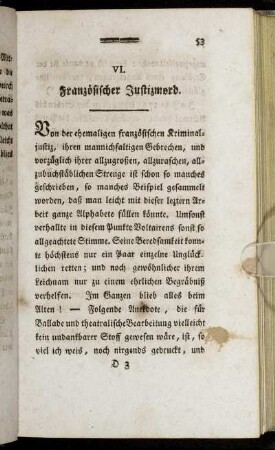 53
VI.
Französischer Justizmord.
Von der ehemaligen französischen Kriminal-
justiz, ihren mannichfaltigen Gebrechen, und
vorzüglich ihrer allzugroßen, allzuraschen, all-
zubuchstäblichen Strenge ist schon so manches
geschrieben, so manches Beispiel gesammelt
worden, daß man leicht mit dieser leztern Ar-
beit ganze Alphabete füllen könnte. Umsonst
verhallte in diesem Punkte Voltairens sonst so
allgeachtete Stimme. Seine Beredsamkeit konn-
te höchstens nur ein Paar einzelne Unglück-
lichen retten; und noch gewöhnlicher ihrem
Leichnam nur zu einem ehrlichen Begräbniß
verhelfen. Im Ganzen blieb alles beim
Alten! — Folgende Anekdote, die für
Ballade und theatralische Bearbeitung vielleicht
kein undankbarer Stoff gewesen wäre, ist, so
viel ich weis, noch nirgends gedruckt, und
D 3